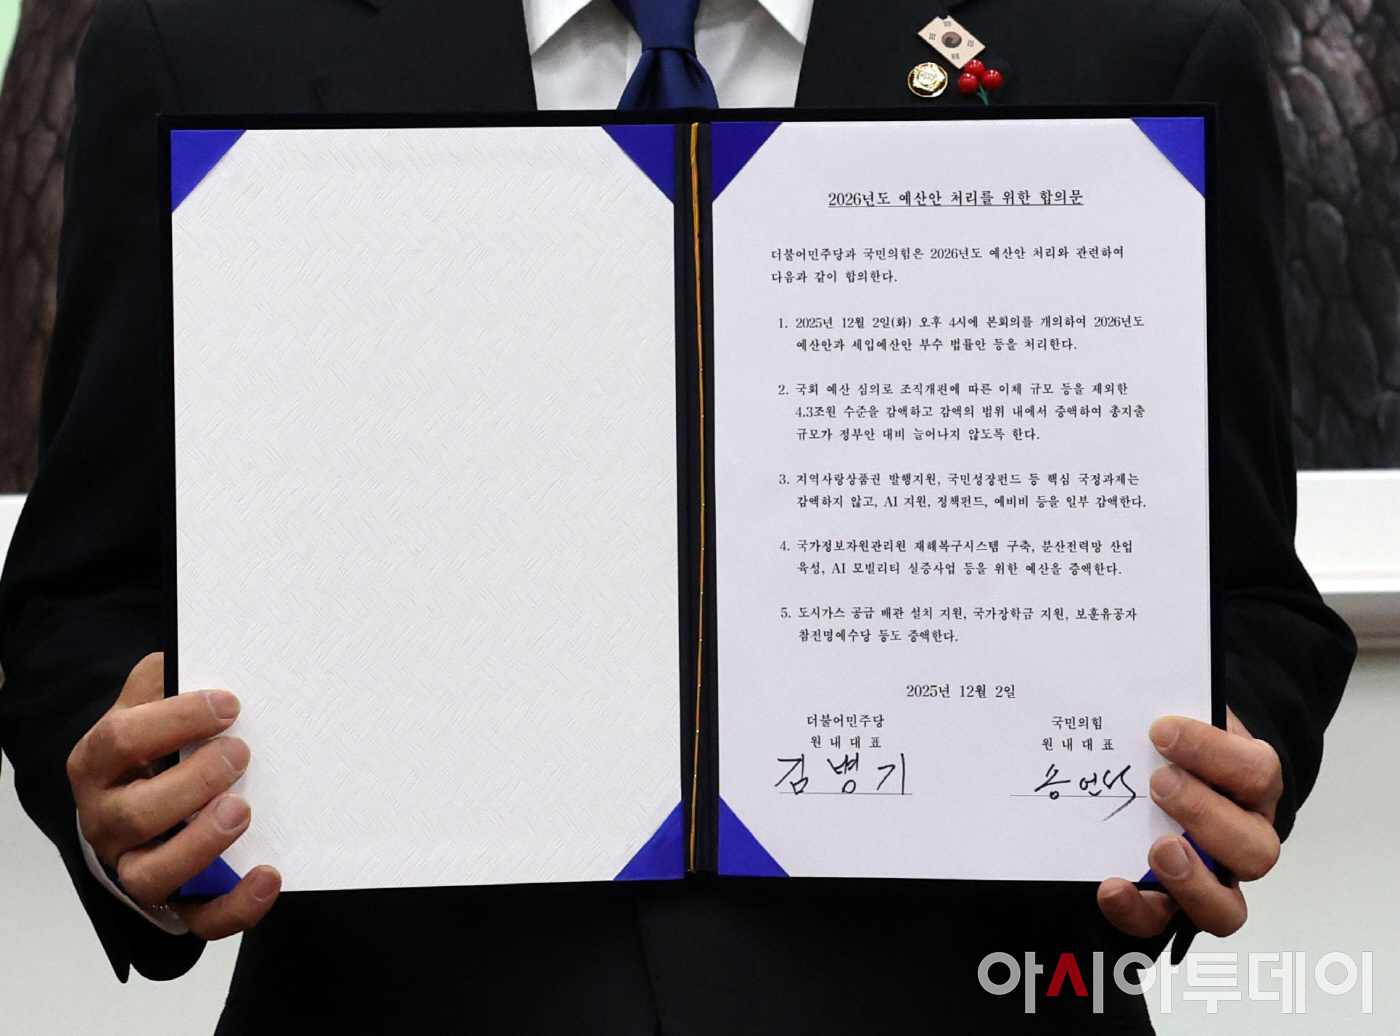 2026년도 예산안 처리를 위한 합의문
더불어민주당과 국민의힘은 2026년도 예산안 처리와 관련하여
다음과 같이 합의한다.
1. 2025년 12월 2일(화) 오후 4시에 본회의를 개의하여 2026년도
예산안과 세입예산안 부수 법률안 등을 처리한다.
2. 국회 예산 심의로 조직개편에 따른 이체 규모 등을 제외한
4.3조원 수준을 감액하고 감액의 범위 내에서 증액하여 총지출
규모가 정부안 대비 늘어나지 않도록 한다.
3. 지역사랑상품권 발행지원, 국민성장펀드 등 핵심 국정과제는
감액하지 않고, AI 지원, 정책펀드, 예비비 등을 일부 감액한다.
4. 국가정보자원관리원 재해복구시스템 구축, 분산전력망 산업
육성, AI 모빌리티 실증사업 등을 위한 예산을 증액한다.
5. 도시가스 공급 배관 설치 지원, 국가장학금 지원, 보훈유공자
참전명예수당 등도 증액한다.
2025년 12월 2일
더불어민주당
원 내 대 표
김 병 기
국민의힘
원 내 대 표
송 언석
아시아투데이